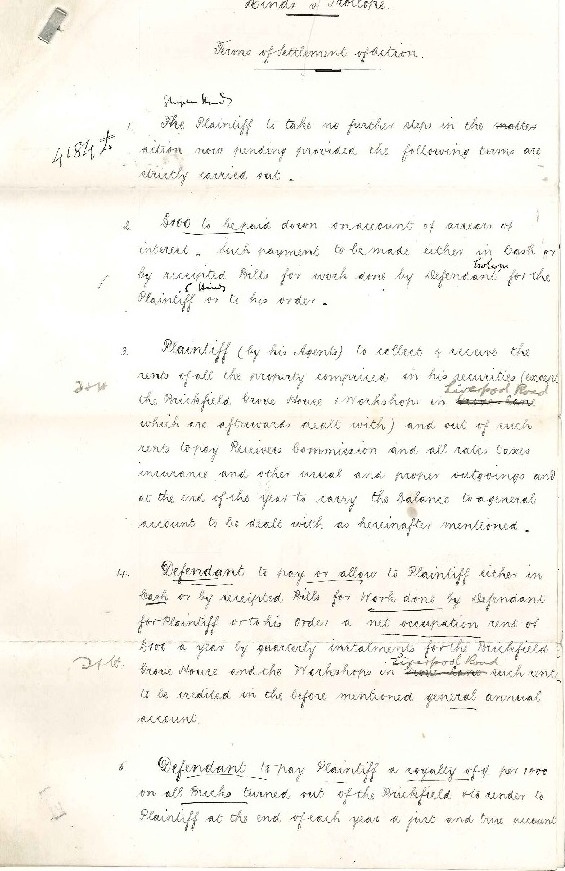 Hinds v Trollope.
Terms of Settlement of action.
Stephen Hinds
1. The Plaintiff to take no further steps in the matter
action now pending provided the following terms are
strictly carried out.
2. £100 to be paid down on account of arrears of
interest. Such payment to be made either in Cash or
by receipted Bills for work done by Defendant for the
Plaintiff or to his order.
Hinds
3. Plaintiff (by his Agents) to collect & receive the
rents of all the property comprised in his securities (except
Liverpool Road
the Brickfield Grove House & Workshops in
which are afterwards dealt with) and out of such
rents to pay Receivers Commission and all rates taxes
insurance and other usual and proper outgoings and
at the end of the year to carry the balance to a general
account to be dealt with as hereinafter mentioned.
4. Defendant to pay or allow to Plaintiff either in
Cash or by receipted Bills for Work done by Defendant
for Plaintiff or to his order a net occupation rent of
£100 a year by quarterly instalments for the Brickfield
Liverpool Road
Grove House and the Workshops in such rent
to be credited in the before mentioned general annual
account.
5. Defendant to pay Plaintiff a royalty of per 1000
on all Bricks turned out of the Brickfield & to render to
Plaintiff at the end of each year a just and true account